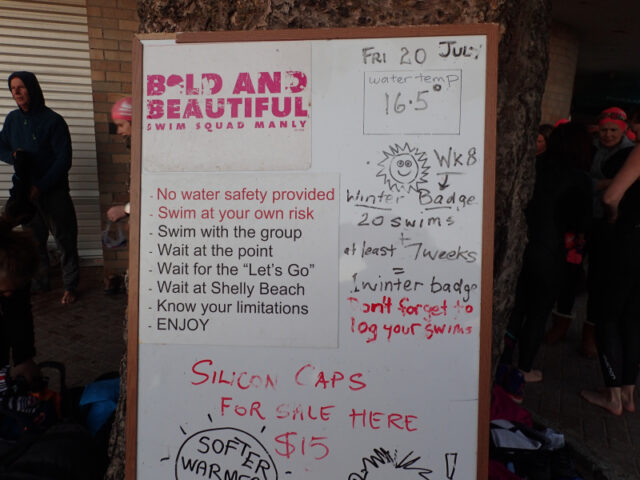 BOLD AND
BEAUTIFUL
SWIM SQUAD MANLY
FRI 20 JULY
water temp
16.5°
- No water safety provided
- Swim at your own risk
- Swim with the group
- Wait at the point
- Wait for the “Let's Go”
- Wait at Shelly Beach
- Know your limitations
- ENJOY
WK8
Winter Badge
20 swims
+
at least 7 weeks
=
1 winter badge
Don't forget to
log your swims
SILICON CAPS
FOR SALE HERE
$15
SOFTER
WARMER
!